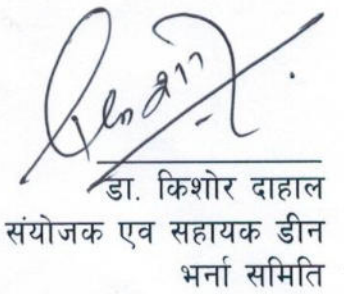 डा. किशोर दाहाल
संयोजक एव सहायक डीन
भर्ना समिति